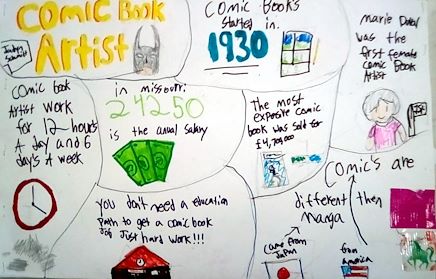 COMiC BOOK
ARTist
COMiC BOOK'S
Started in.
1930
marie
was the
first female
Comic Book
Artist
COMiC book
Artist work
for 12 hours
A day and 6
day's A week
in missouri
24250
is the anual salary
The most
exposite comic
book was sold for
YOU don't need a education
path to get a comic book
job Just hard work!!!
COMiC's are
different then
manga
came from
Japan
from
america